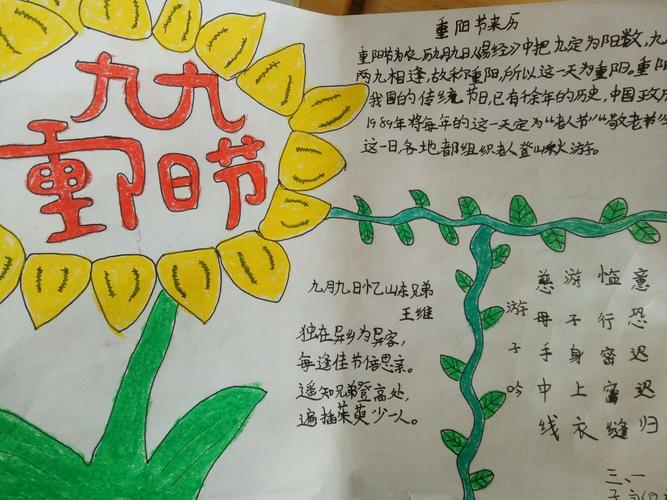 九九
重阳节
重阳节来历
重阳节为农历九月九日《易经》中把九定为阳数,九
两九相逢,故称重阳,所以这一天为重阳。重阳
我国的传统节日,已有千余年的历史,中国政府
1989年将每年的这一天定为“老人节”“敬老节”
这一日各地都组织老人登山秋游。
九月九日忆山东兄弟
王维
独在异乡为异客,
每逢佳节倍思亲。
遥知兄弟登高处,
遍插茱萸少一人。
游子吟
慈母手中线
游不身上衣
行密密缝
意恐迟迟归
三、一